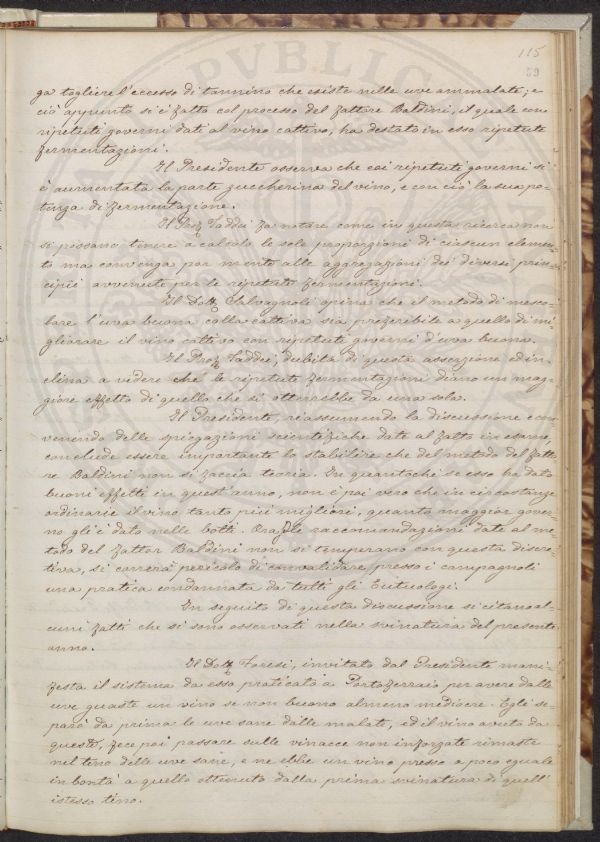 115
59
ga togliere l'eccesso di tannino che esiste nelle uve ammalate; e
ciò appunto si è fatto col processo del fattore Baldini, il quale con
ripetuti governi dati al vino cattivo, ha destato in esso ripetute
fermentazioni.
Il Presidente osserva che coi ripetuti governi si
è aumentata la parte zuccherina del vino, e con ciò la sua po-
tenza di fermentazione.
Il Prof. Taddei fa notare come in questa ricerca non
si possano tenere a calcolo le sole proporzioni di ciascun elemen-
to ma convenga por mente alle aggregazioni dei diversi prin-
cipii avvenute per le ripetute fermentazioni.
Il Dott. Salvagnoli opina che il metodo di mesco-
lare l'uva buona colla cattiva sia preferibile a quello di mi-
gliorare il vino cattivo con ripetuti governi d'uva buona.
Il Prof. Taddei, dubita di questa asserzione ed in-
clina a vedere che le ripetute fermentazioni diano un mag-
giore effetto di quello che si otterrebbe da una sola.
Il Presidente, riassumendo la discussione e con-
venendo delle spiegazioni scientifiche date al fatto in esame,
conclude essere importante lo stabilire che del metodo del fatto-
re Baldini non si faccia teoria. In quantochè se esso ha dato
buoni effetti in quest'anno, non è poi vero che in circostanze
ordinarie il vino tanto più migliori, quanto maggior gover-
no gli è dato nelle botti. Ora se le raccomandazioni date al me-
todo del fattor Baldini non si temperano con questa discre-
tiva, si correrà pericolo di convalidare presso i campagnoli
una pratica condannata da tutti gli Enticologi.
In seguito di questa discussione si citano al-
cuni fatti che si sono osservati nella svinatura del presente
anno.
Il Dott. Foresi, invitato dal Presidente mani-
festa il sistema da esso praticato a Portoferraio per avere dalle
uve guaste un vino se non buono almeno mediocre. Egli se-
parò da prima le uve sane dalle malate, ed il vino avuto da
queste, fece poi passare sulle vinacce non inforzate rimaste
nel tino delle uve sane, e ne ebbe un vino presso a poco eguale
in bontà a quello ottenuto dalla prima svinatura di quell'
istesso tino.